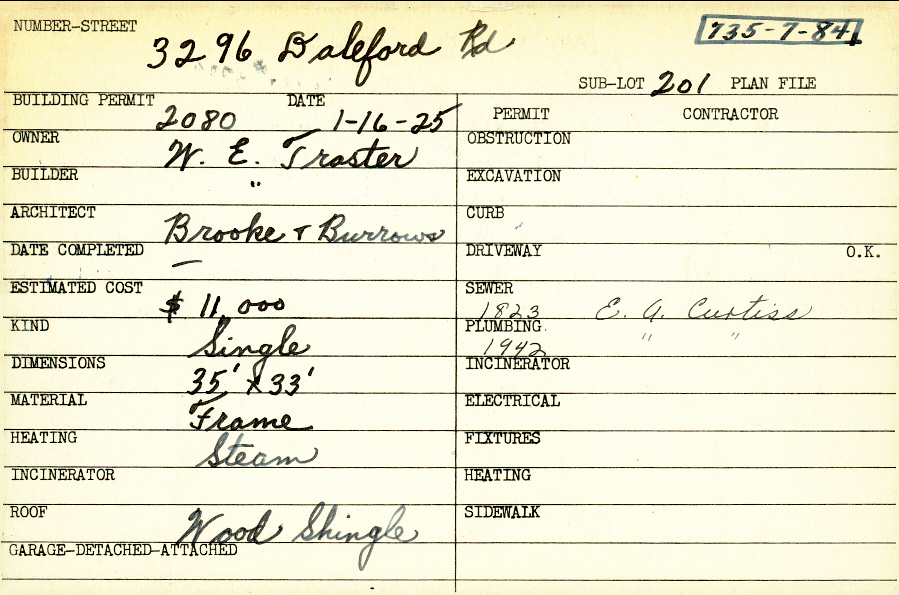 NUMBER-STREET 3296 Daleford Rd 735-7-84
SUB-LOT 201 PLAN FILE
BUILDING PERMIT 2080 DATE 1-16-25
OWNER W. E. Traster
BUILDER "
ARCHITECT Brooke & Burrows
DATE COMPLETED —
ESTIMATED COST $11,000
KIND Single
DIMENSIONS 35' x 33'
MATERIAL Frame
HEATING Steam
INCINERATOR
ROOF Wood Shingle
GARAGE-DETACHED-ATTACHED
PERMIT CONTRACTOR
OBSTRUCTION
EXCAVATION
CURB
DRIVEWAY O.K.
SEWER 1823 E. A. Curtiss
PLUMBING 1942 " "
INCINERATOR
ELECTRICAL
FIXTURES
HEATING
SIDEWALK